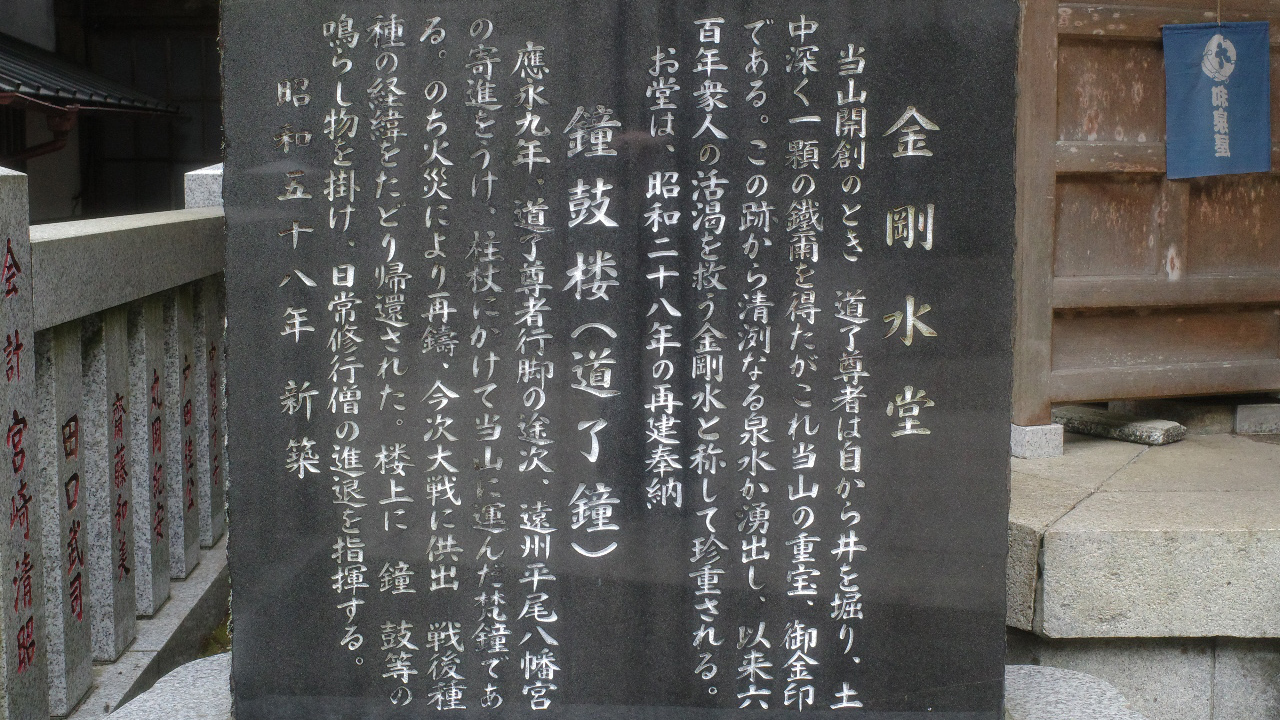 金剛水堂
当山開創のとき　道了尊者は自から井を堀り、土
中深く一顆の鐵爾を得たがこれ当山の重宝、御金印
である。この跡から清洌なる泉水か湧出し、以来六
百年衆人の活渇を救う金剛水と称して珍重される。
お堂は、昭和二十八年の再建奉納
鐘鼓楼（道了鐘）
應永九年、道了尊者行脚の途次、遠州平尾八幡宮
の寄進をうけ、柱杖にかけて当山に運んだ梵鐘であ
る。のち火災により再鑄、今次大戦に供出　戦後種
種の経緯をたどり帰還された。楼上に　鐘　鼓等の
鳴らし物を掛け、日常修行僧の進退を指揮する。
昭和五十八年　新築
和泉屋
会計　宮崎清昭
田口武司
齋藤和美